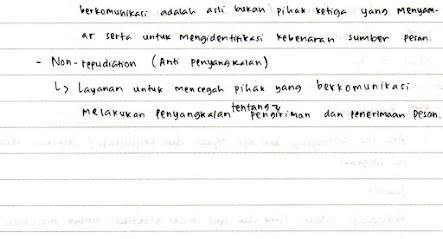 berkomunikasi adalah asli bukan pihak ketiga yang menyam-
ar serta untuk mengidentifikasi kebenaran sumber pesan.
- Non-repudiation (Anti penyangkalan)
↳ Layanan untuk mencegah pihak yang berkomunikasi
melakukan penyangkalan tentang pengiriman dan penerimaan pesan.